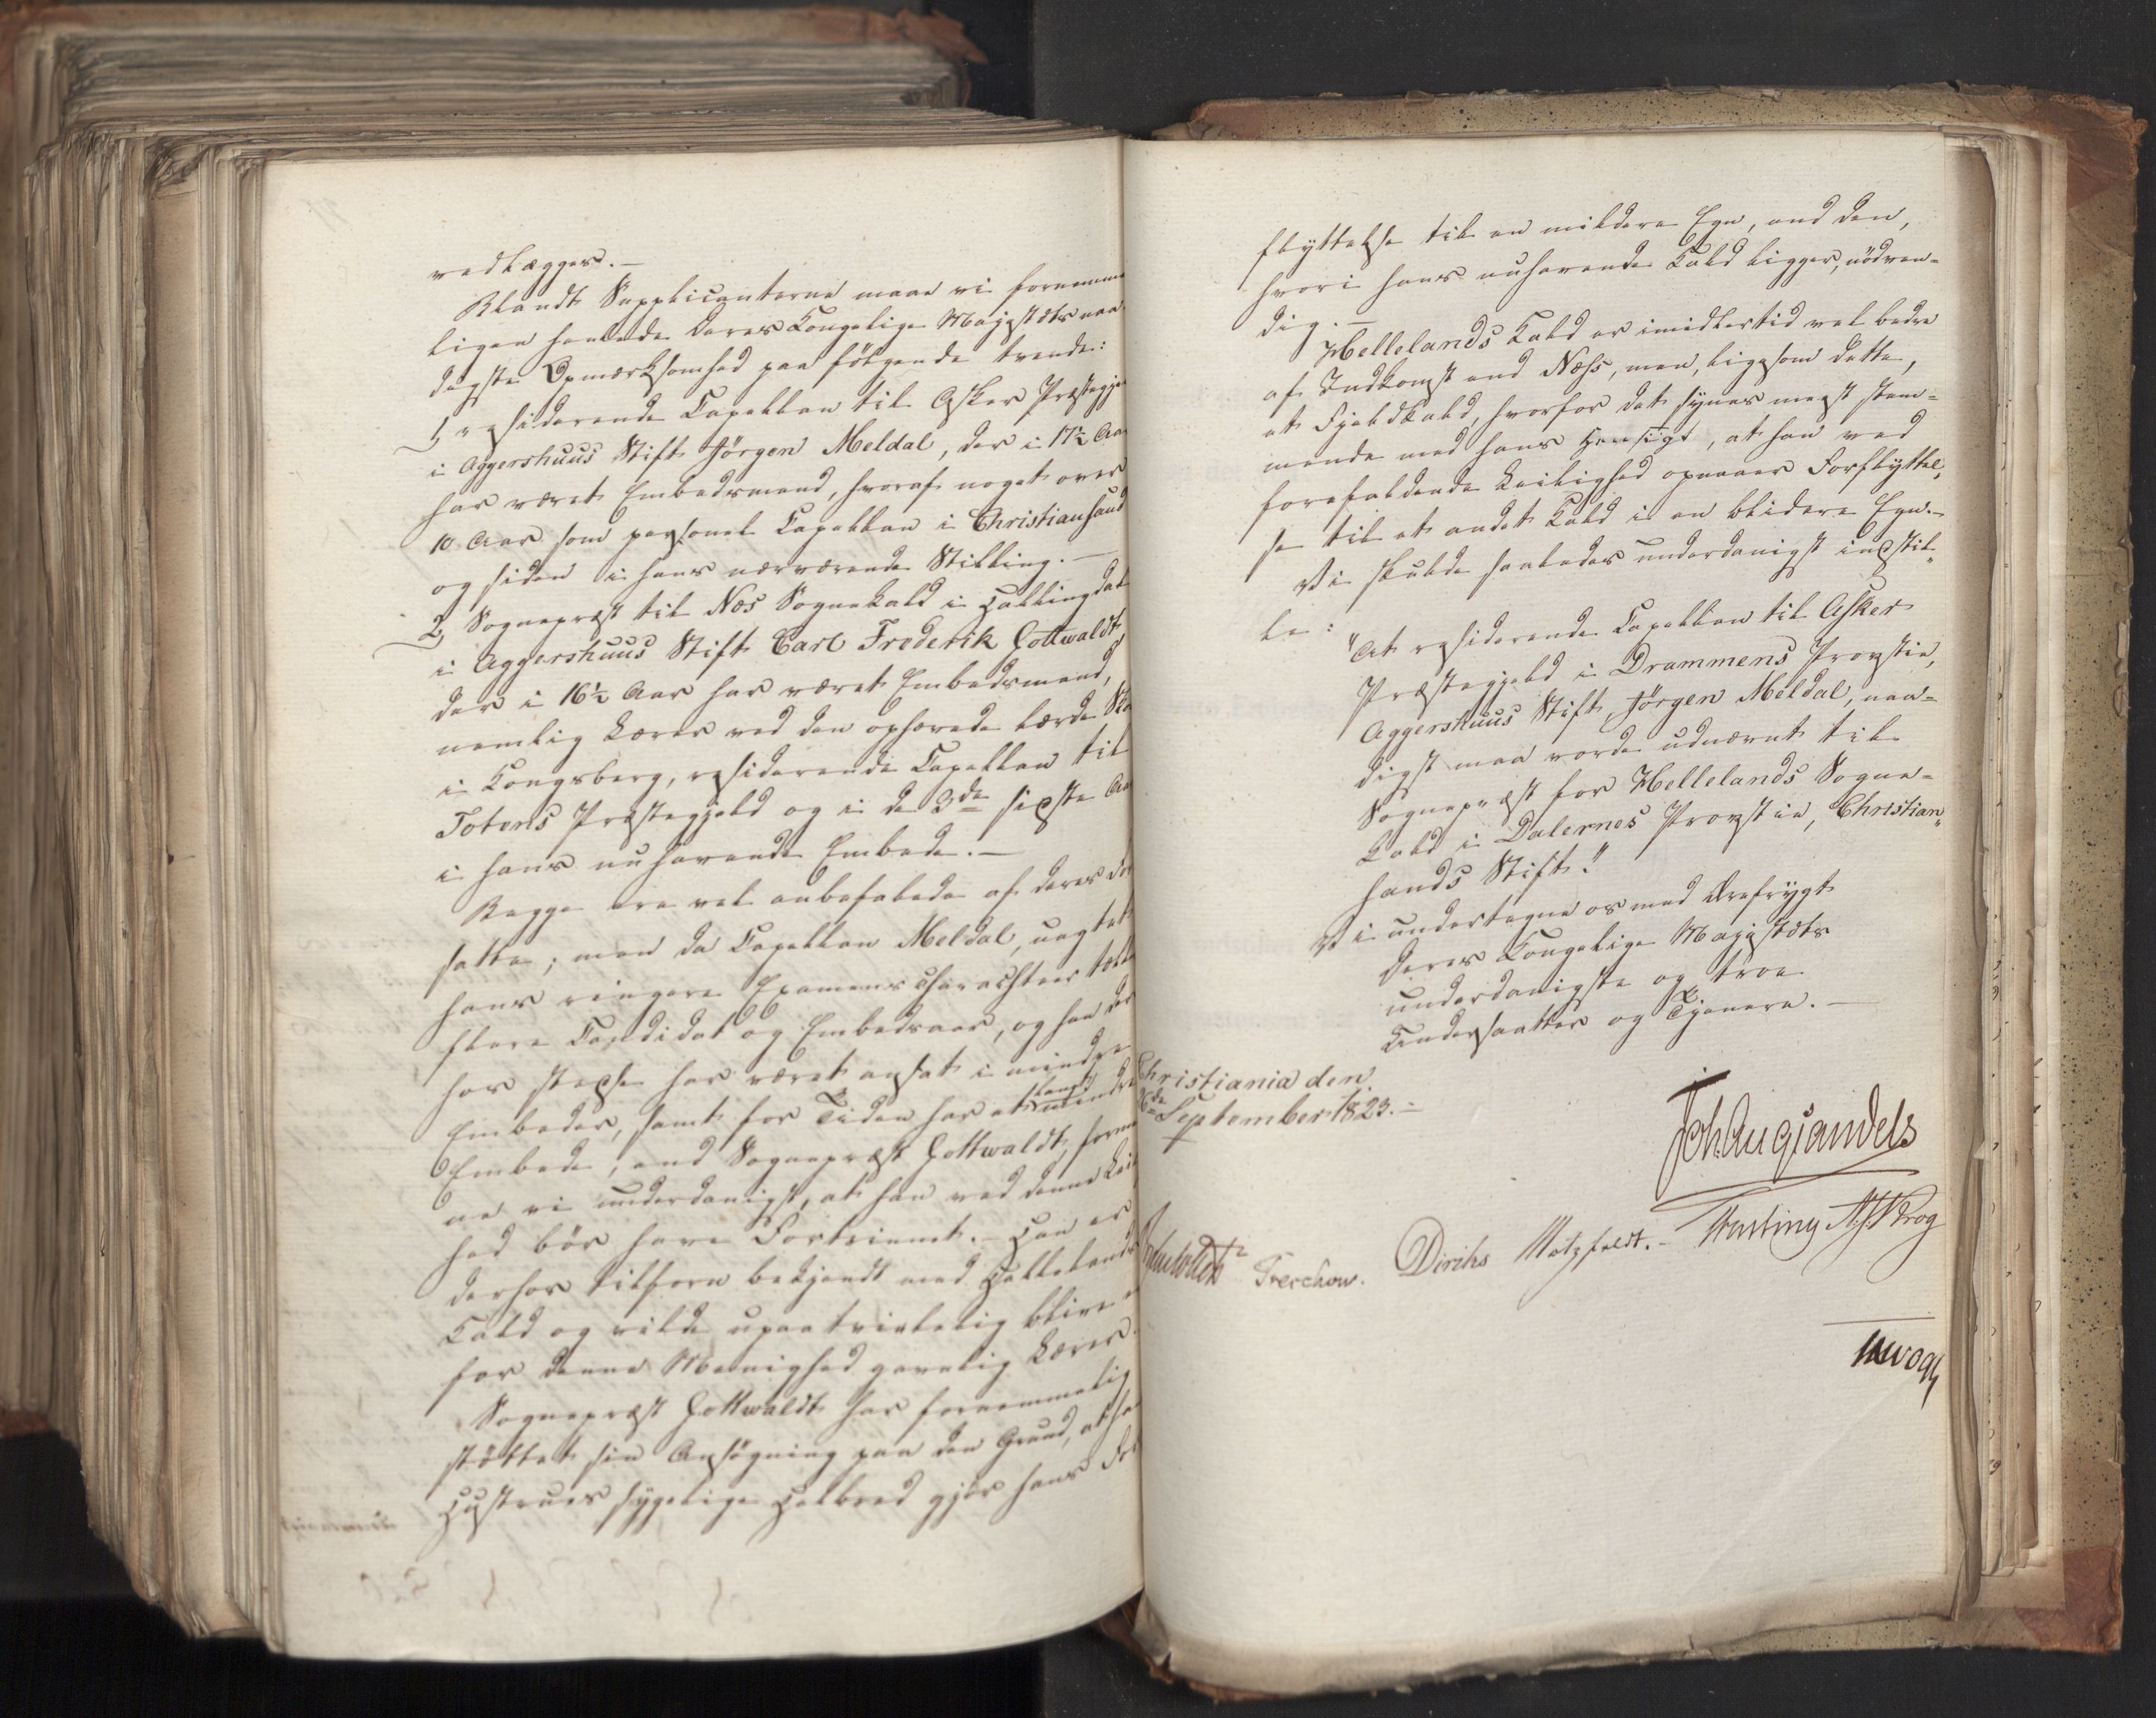 vedlægges.—
Blandt Supplicanterne maae vi fornemme
ligen henlede Deres Kongelige Majestæts naa-
digste Opmærksomhed paa følgende trende:
1, residerende Capellan til Asker Præstegje
i Aggershuus Stift Jörgen Meldal, der i 17½ Aar
har været Embedsmand, hvoraf noget over
10 Aar som personel Capellan i Christiansand
og siden i hans nærværende Stilling.—
2, Sognepræst til Næs Sognekald i Hallingdal
i Aggershuus Stift Carl Frederik Gottwaldt,
der i 16½ Aar har været Embedsmand,
nemlig Lærer ved den ophævede lærde Sko
i Kongsberg, residerende Capellan til
Totens Præstegjeld og i de 3de sidste Aar
i hans nuhavende Embede.—
Begge ere vel anbefalede af deres For
satte; men da Capellan Meldal, uagtet
hans ringere Examens Charachteer tæller
flere Candidat og Embedsaar, og han der
hos stedse har været ansat i mindre
Embeder, samt for Tiden har et langt mindre
Embede, end Sognepræst Gottwaldt, forme
ne vi underdanigst, at han ved denne Leilig
hed bör have Fortrinnet.— Han er
derhos tilforn bekjendt med Hellelands
Kald og vilde upaatvivlelig blive en
for denne Menighed gavnlig Lærer.
Sognepræst Gottwaldt har fornemmelig
støttet sin Ansøgning paa den Grund, at ha
Hustrues sygelige Helbred gjör hans For
flyttelse til en mildere Egn, end den,
hvori hans nuhavende Kald ligger, nödven-
dig.—
Hellelands Kald er imidlertid vel bedre
af Indkomst end Næss, men, ligesom dette,
et Fjeldkald, hvorfor det synes meest stem-
mende med hans Hensigt, at han ved
forefaldende Leilighed opnaaer Forflyttel-
se til et andet Kald i en blidere Egn.—
Vi skulde saaledes underdanigst indstil-
le:
"At residerende Capellan til Asker
Præstegjeld i Drammens Provstie,
Aggershuus Stift, Jörgen Meldal, naa-
digst maa vorde udnævnt til
Sognepræst for Hellelands Sogne-
kald i Dalernes Provstie, Christian-
sands Stift."
Vi undertegne os med Ærefrygt
Deres Kongelige Majestæts
underdanigste og troe
Undersaatter og Tjenere.—
Christiania den
26de September 1823.—
Joh: Aug Sandels
Treschow. Diriks Motzfeldt.— Fasting A.S. Krog